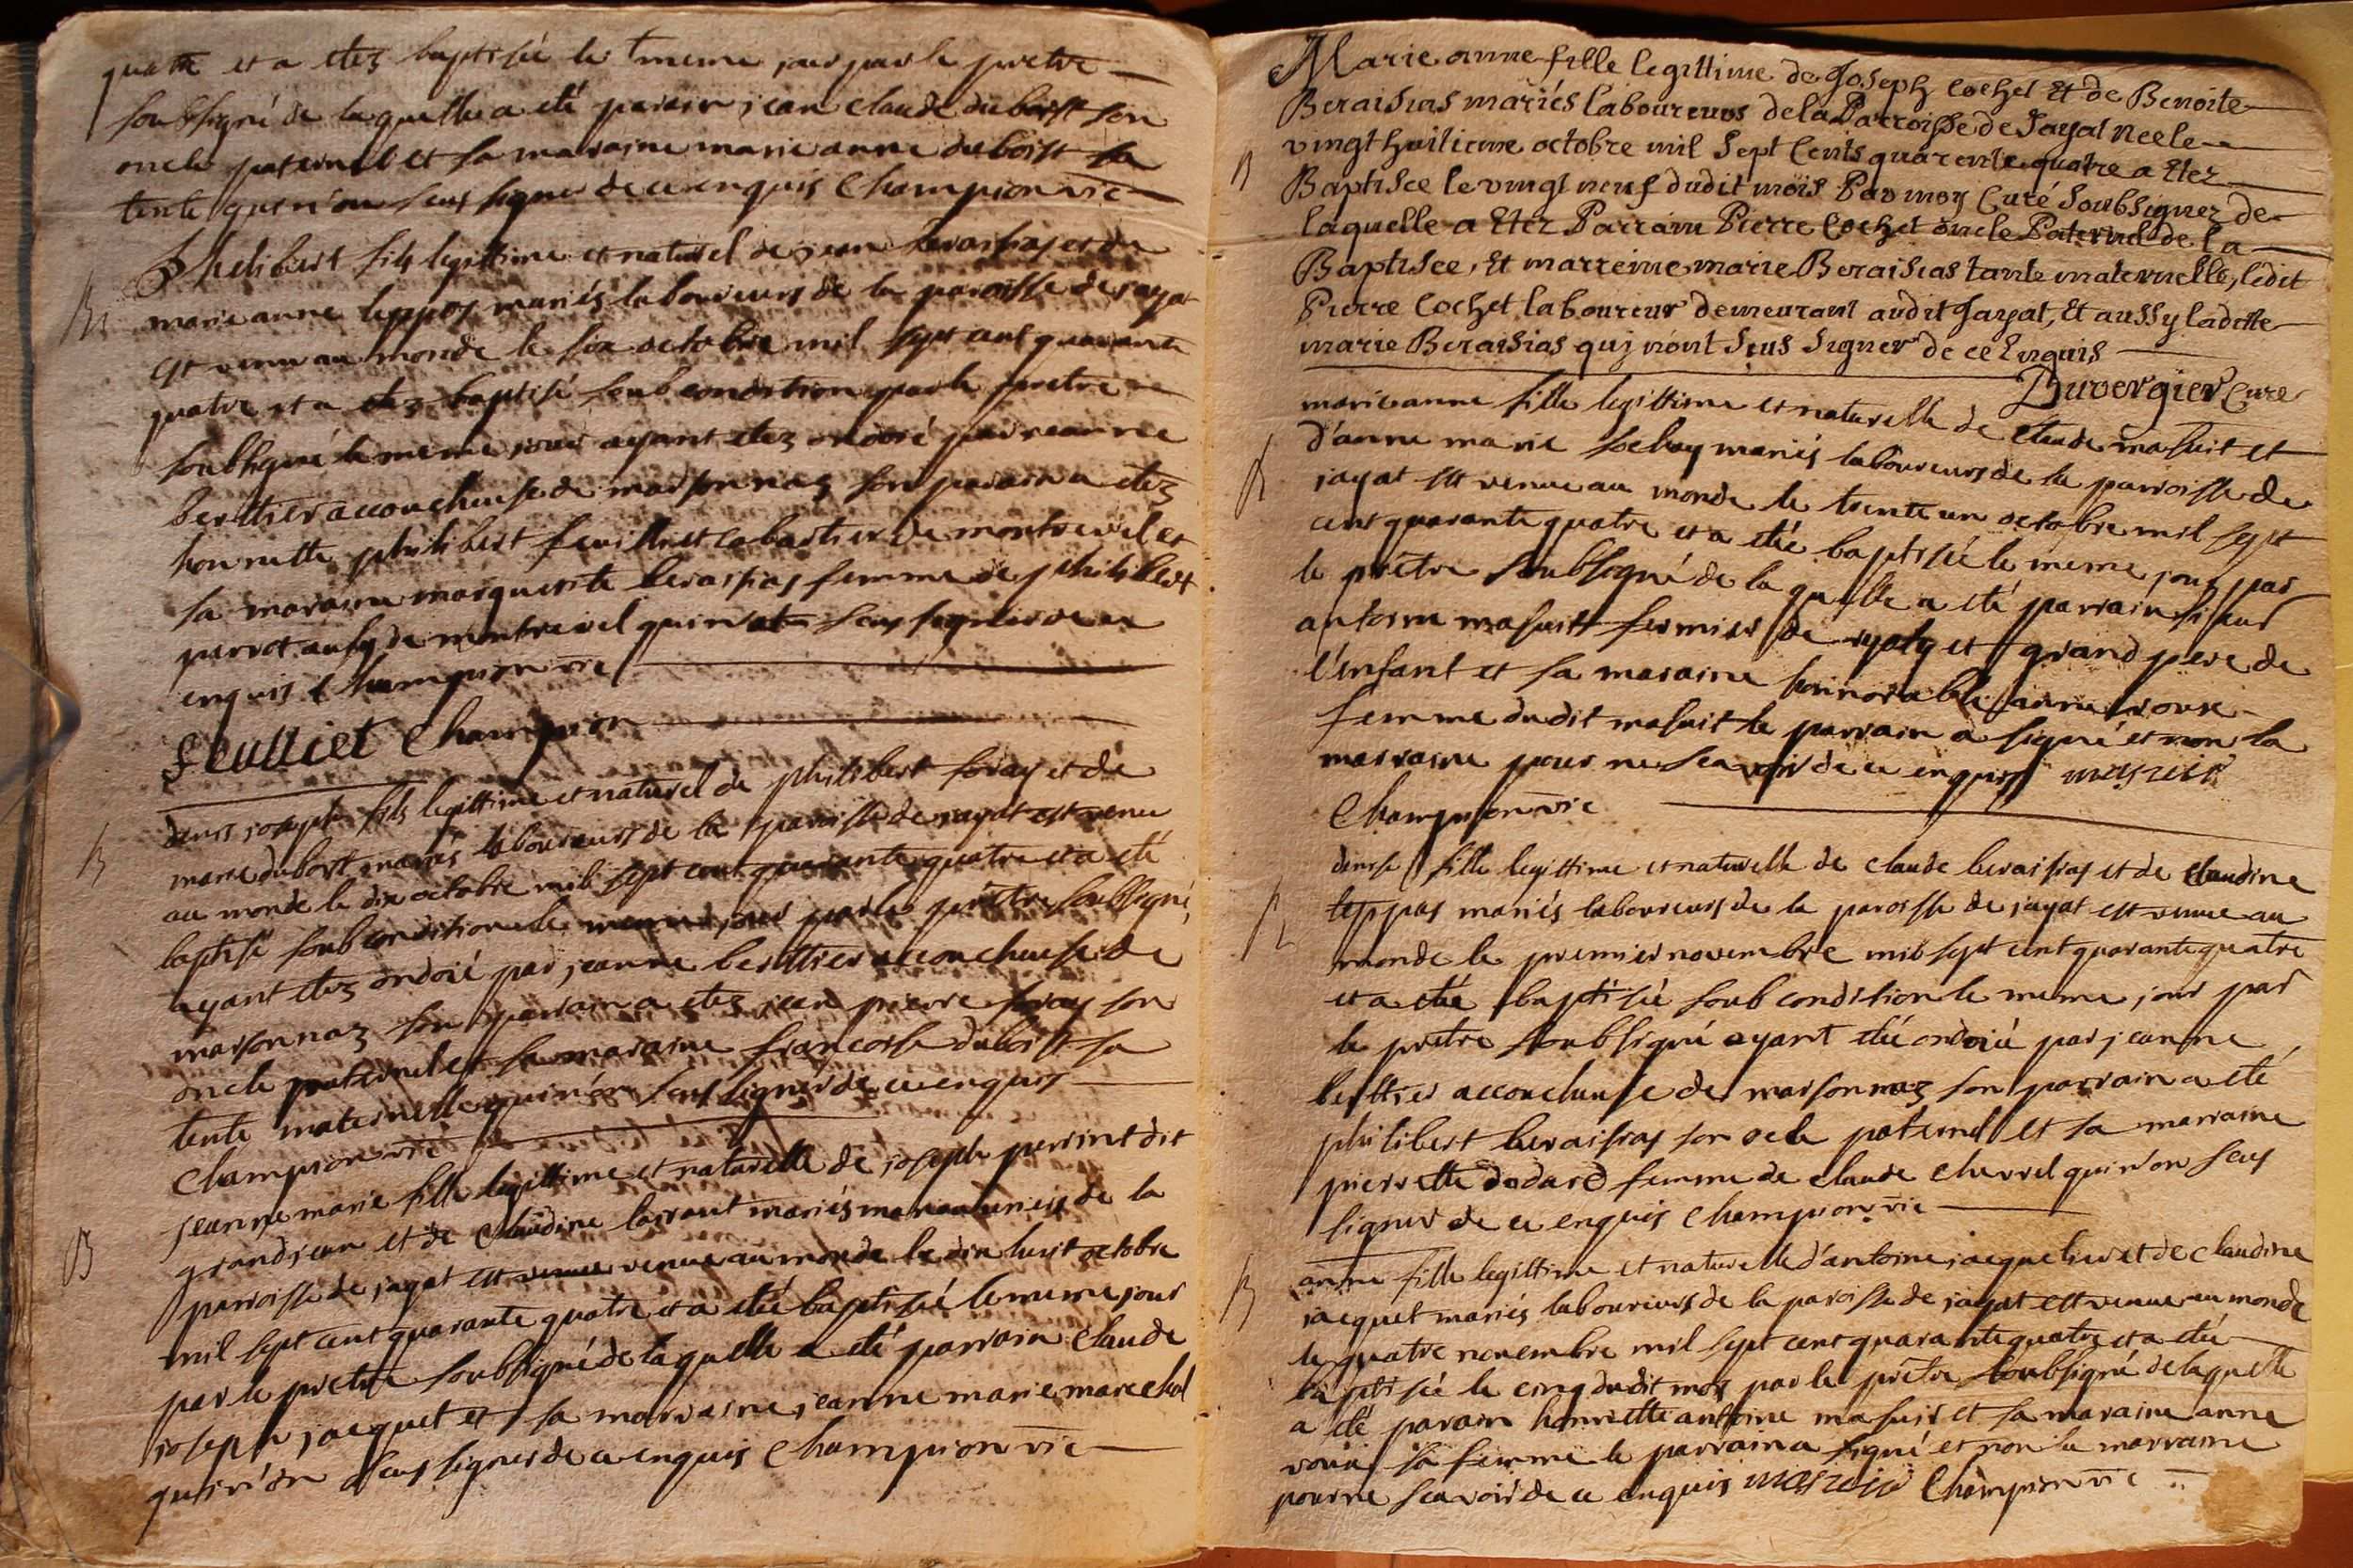 quatre et a etez baptisée le meme jour par le pretre
soubsigné de laquelle a eté parain jean claude duboist son
oncle paternel et sa maraine marie anne duboist sa
tente qui n'on seus signer de ce enquis Champion vic
B
Philibert fils legittime et naturel de jean beraisias et de
marie anne teppos mariés laboureurs de la paroisse de jayat
est venu au monde le six octobre mil sept cent quarante
quatre et a etez baptisé soub condition par le pretre
soubsigné le meme jour ayant etez ondoié par jeanne
berttier accoucheuse de marsonnaz son parain a etez
honnette philibert feuilliet cabartier de montrevel et
sa maraine marguerite beraisias femme de philibert
perrot aussy de montrevel qui n'at seus signer de ce
enquis Champion vic
feuilliet Champion
B
denis joseph fils legittime et naturel de philibert foray et de
marie duboit mariés laboureurs de la paroisse de jayat est venu
au monde le dix octobre mil sept cent quarante quatre et a eté
baptisé soub condition le meme jour par le prêtre soubsigné,
ayant etez ondoié par jeanne berttier accoucheuse de
marsonnaz son parrain a etez jean pierre foray son
oncle paternel et sa maraine francoise duboist sa
tente maternelle qui n'on seus signer de ce enquis
Champion vic
B
jeanne marie fille legittime et naturelle de joseph perrint dit
grandjean et de Claudine laurant mariés manouvriers de la
parroisse de jayat est venue venue au monde le dix huit octobre
mil sept cent quarante quatre et a etée baptisée le meme jour
par le pretre soubsigné de laquelle a eté parrain Claude
joseph jacquet et sa marraine jeanne marie marechal
qui n'on seus signer de ce enquis Champion vic
Marie anne fille legittime de Joseph Cochet Et de Benoite
Beraisias mariés laboureurs de la Parroisse de Jayat Née le
vingt huitieme octobre mil Sept Cents quarente quatre a Etez
B
Baptisée le vingt neuf dudit mois Par moy Curé Soubsignez de
laquelle a Etez Parrain Pierre Cochet oncle Paternel de la
Baptisée, Et marreine marie Beraisias tante maternelle, ledit
Pierre Cochet laboureur demeurant audit Jayat, Et aussy laditte
marie Beraisias qui n'ont Sçus Signer de ce Enquis
Duvergier Curé
marie anne fille legittime et naturelle de claude masuit et
B
d'anne marie sochay mariés laboureurs de la parroisse de
jayat est venue au monde le trente un octobre mil sept
cent quarante quatre et a etée baptisée le meme jour par
le prêtre soubsigné de la quelle a eté parrain sieur
antoine masuit fermier de et grand pere de
l'enfant et sa maraine honnorable anne
femme dudit masuit le parrain a signé et non la
marraine pour ne scavoir de ce enquis masuit
Champion vic
denise fille legittime et naturelle de claude beraisias et de Claudine
B
teppas mariés laboureurs de la paroisse de jayat est venue au
monde le premier novembre mil sept cent quarante quatre
et a etée baptisée soub condition le meme jour par
le pretre soubsigné ayant eté ondoiée par jeanne
berttier accoucheuse de marsonnaz son parrain a eté
philibert beraisias son ocle paternel et sa marraine
pierrette dodard femme de claude chevrel qui n'on seus
signer de ce enquis Champion vic
B
anne fille legittime et naturelle d'antoine jacquelier et de claudine
jacquet mariés laboureurs de la paroisse de jayat est venue au monde
le quatre novembre mil sept cent quarante quatre et a etée
baptisée le cinq dudit mois par le pretre soubsigné de laquelle
a eté parain honnette antoine masuit et sa maraine anne
sa femme le parrain a signé et non la marraine
pour ne scavoir de ce enquis masuit Champion vic